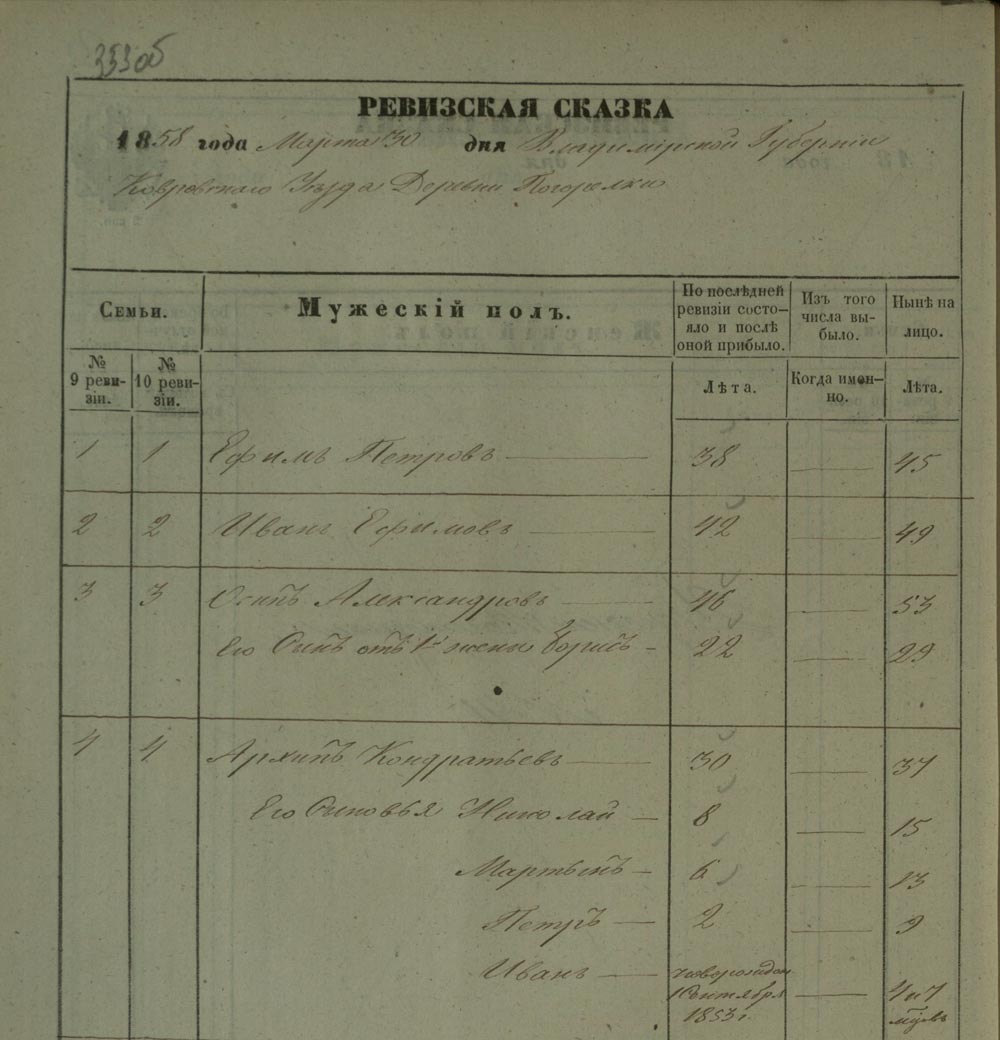 353об
РЕВИЗСКАЯ СКАЗКА
1858 года Марта 30 дня Владимірской Губерніи
Ковровского Уѣзда Деревни Погорелки
Семьи.
Мужескій полъ.
По послѣдней
ревизіи состо-
яло и послѣ
оной прибыло.
Изъ того
числа вы-
было.
Нынѣ на
лицо.
№
9 реви-
зіи.
№
10 реви-
зіи.
Лѣта.
Когда имен-
но.
Лѣта.
1 1 Ефимъ Петровъ 38 45
2 2 Иванъ Ефимовъ 42 49
3 3 Осипъ Александровъ 46 53
Его Сынъ отъ 1й жены Борисъ 22 29
4 4 Архипъ Кондратьевъ 30 37
Его Сыновья Николай 8 15
Мартынъ 6 13
Петръ 2 9
Иванъ новорожден
1 Сентября 4 и 7
1853 г. мцвъ